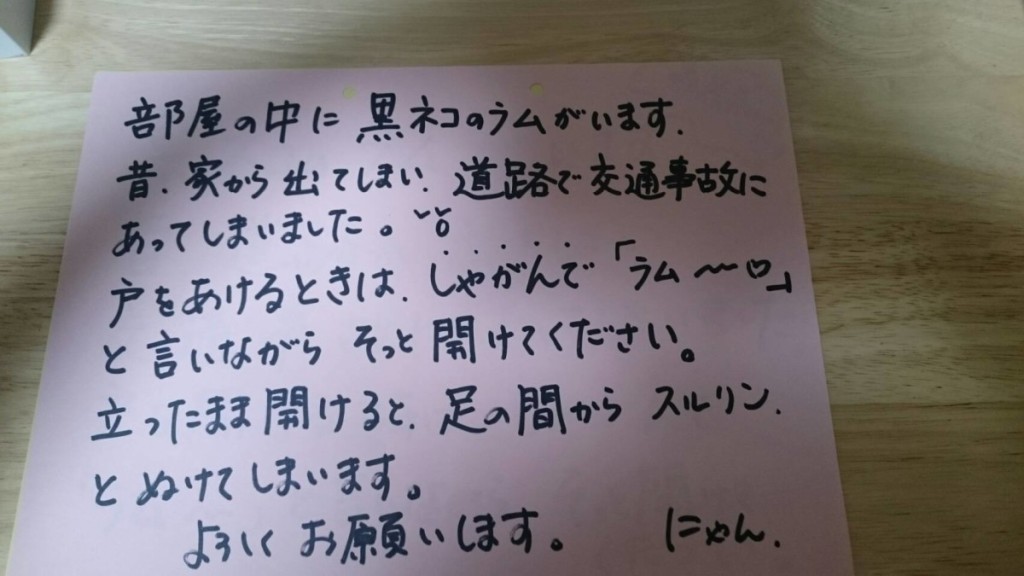 部屋の中に黒ネコのラムがいます.
昔、家から出てしまい、道路で交通事故に
あってしまいました。
戸をあけるときは、しゃがんで「ラム〜♡」
と言いながらそっと開けてください。
立ったまま開けると、足の間からスルリン、
とぬけてしまいます。
よろしくお願いします。 にゃん.